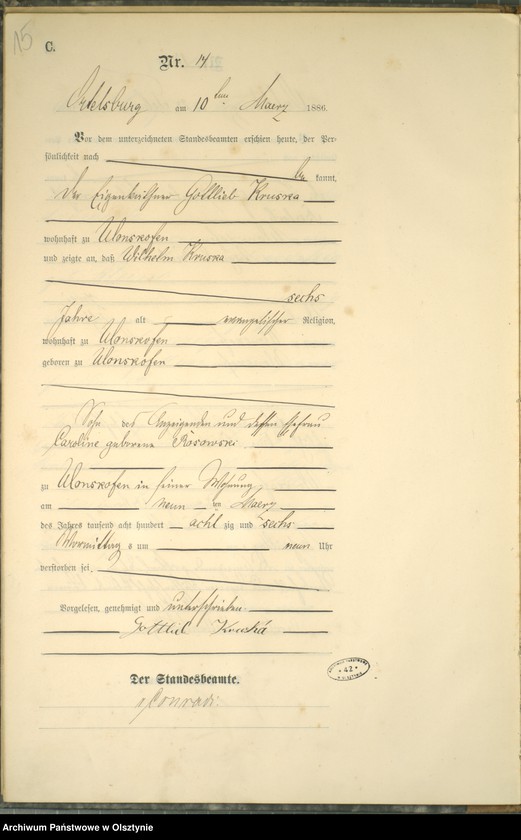 15
C.
Nr. 14
Ortelsburg am 10 ten Maerz 1886.
Vor dem unterzeichneten Standesbeamten erschien heute, der Per-
sönlichkeit nach be kannt,
Der Eigenkäthner Gottlieb Kruska
wohnhaft zu Wonskofen
und zeigte an, daß Wilhelm Kruska
sechs
Jahre alt evangelischer Religion,
wohnhaft zu Wonskofen
geboren zu Wonskofen
Sohn des Anzeigenden und dessen Ehefrau
Caroline geborene Rosowski
zu Wonskofen in seiner Wohnung
am neun ten Maerz
des Jahres tausend acht hundert acht zig und sechs
Vormittag s um neun Uhr
verstorben sei.
Vorgelesen, genehmigt und unterschrieben
Gottlieb Kruska
Der Standesbeamte.
Conradi
42
Archiwum Państwowe w Olsztynie